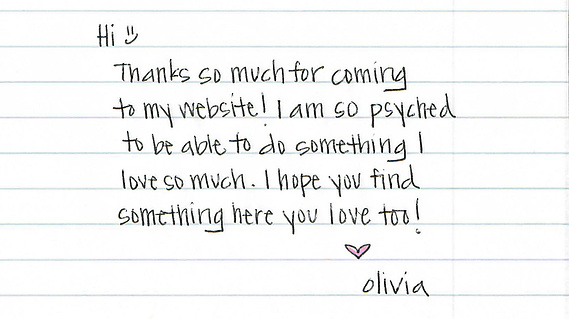 Hi
Thanks so much for coming
to my website! I am so psyched
to be able to do something I
love so much. I hope you find
something here you love too!
olivia